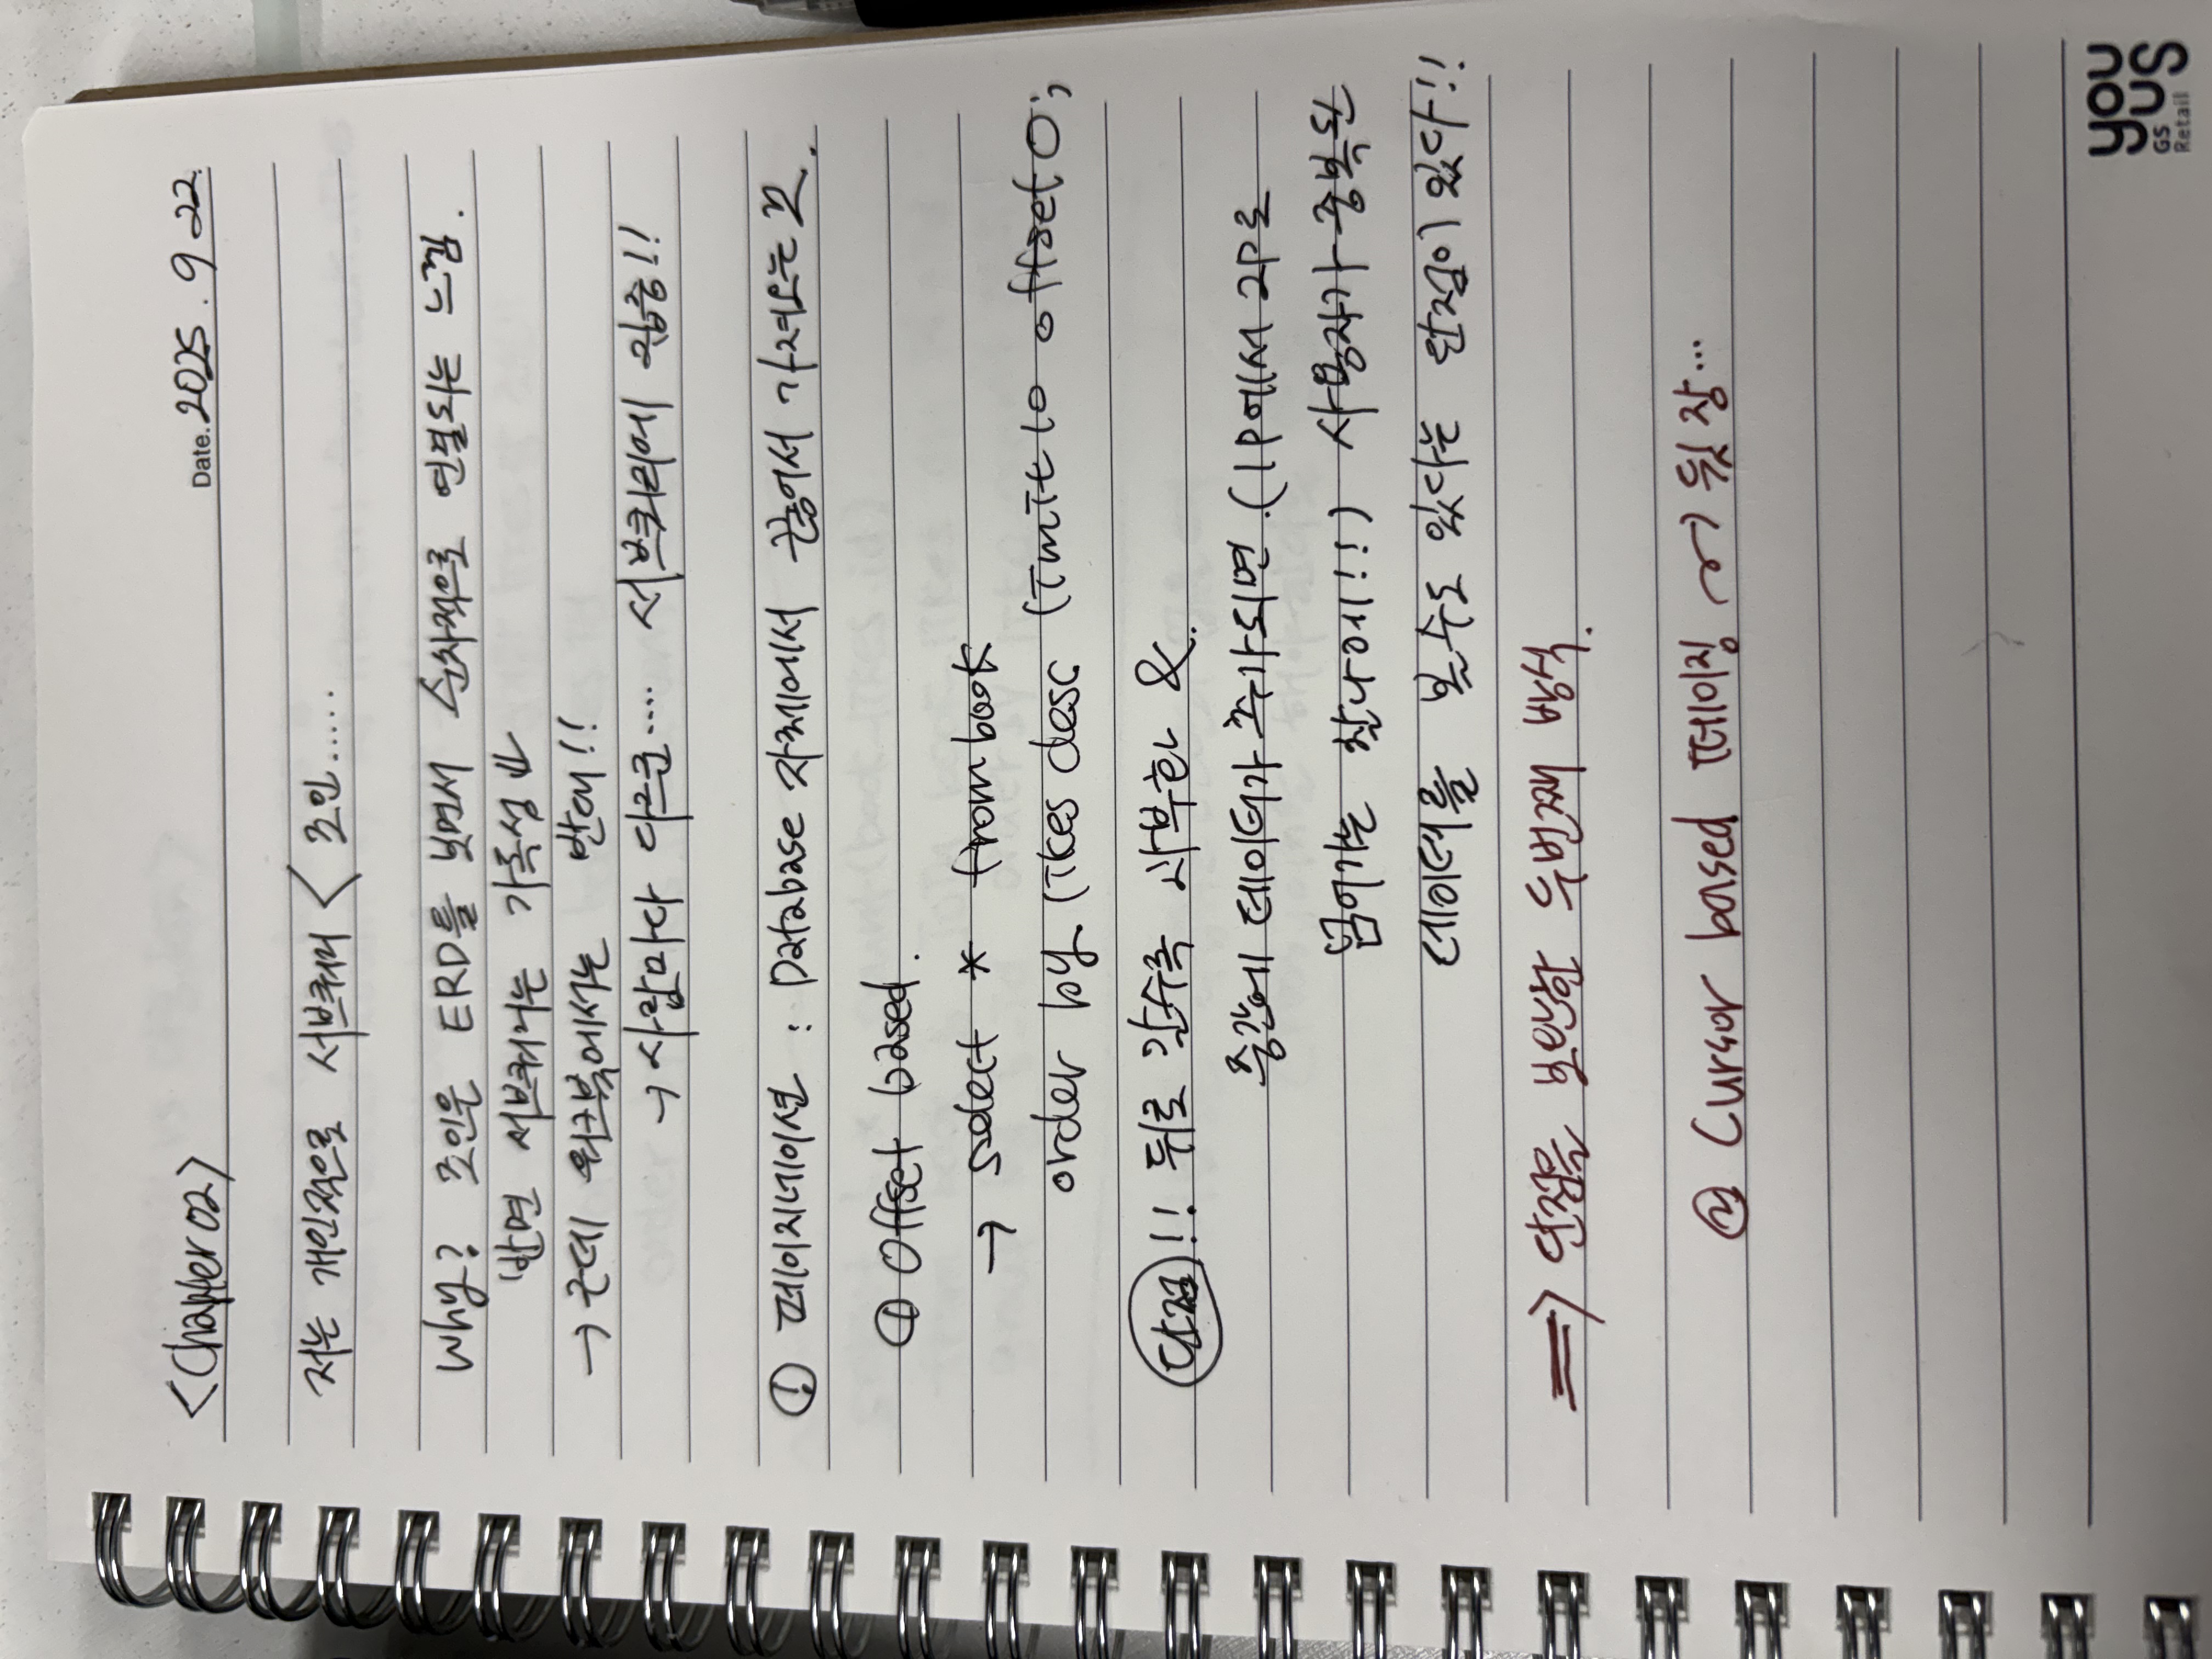 <Chapter 02>
Date. 2025. 9 22.
저는 개인적으로 서브쿼리 < 조인.....
Why? 조인은 ERD를 보면서 순차적으로 연결되는 느낌.
반면 서브쿼리는 가독성 ↓
→ 근데 워크북에서는 반대!!
→ 사람마다 다르군.... 서브쿼리에 집중!!
① 페이지네이션 : Database 자체에서 끊어서 가져오는 것.
① Offset based.
→ select * from book
order by likes desc limit 10 offset 0;
단점!! 뒤로 갈수록 과부하 &.
중간에 데이터가 추가되면 (1P에서 2P로
넘어가는 찰나에!!) 사용자가 중복된
데이터를 볼 수도 있다는 단점이 있다!!
⇒ 단점을 보완한 두번째 방식.
② Cursor based 페이징 → 뒷 장...
you
us
GS
Retail